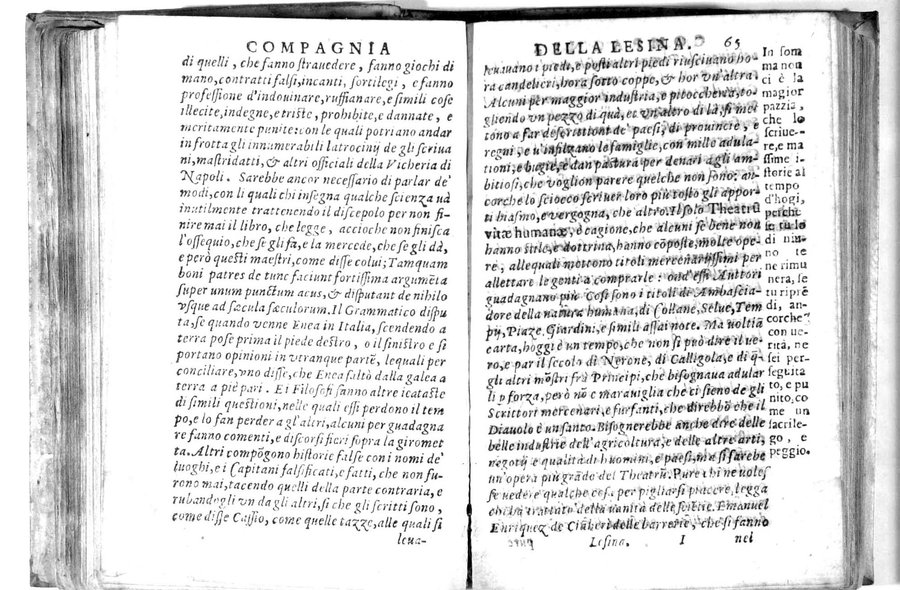 COMPAGNIA
di quelli, che fanno stravedere, fanno giochi di
mano, contratti falsi, incanti, sortilegi, e fanno
professione d'indouinare, ruffianare, e simili cose
illecite, indegne, e triste, prohibite, e dannate, e
meritamente punite: con le quali potriano andar
in frotta gli innumerabili latrocinij de gli scriua
ni, mastridatti, & altri officiali della Vicheria di
Napoli. Sarebbe ancor necessario di parlar de'
modi, con li quali chi insegna qualche scienza uà
inutilmente trattenendo il discepolo per non fi-
nire mai il libro, che legge, accioche non finisca
l'ossequio, che se gli fà, e la mercede, che se gli dà,
e però questi maestri, come disse colui; Tamquam
boni patres de tunc faciunt fortissima argumēta
super unum punctum acus, & disputant de nihilo
vsque ad sæcula sæculorum. Il Grammatico dispu
ta, se quando venne Enea in Italia, scendendo a
terra pose prima il piede destro, o il sinistro e si
portano opinioni in vtranque partē, lequali per
conciliare, vno disse, che Enea saltò dalla galea a
terra a piè pari. E i Filosofi fanno altre icataste
di simili questioni, nelle quali essi perdono il tem
po, e lo fan perder a gl'altri, alcuni per guadagna
re fanno comenti, e discorsi fieri sopra la giromet
ta. Altri compōgono historie false con i nomi de'
luoghi, e i Capitani falsificati, e fatti, che non fu-
reno mai, tacendo quelli della parte contraria, e
rubandogli vn da gli altri, si che gli scritti sono,
come disse Cassio, come quelle tazze, alle quali si
leua-
DELLA LESINA. 65
leuauano i piedi, e posti altri piedi riusciuano ho-
ra candelieri, hora sotto coppe, & hor vn'altra.
Alcuni per maggior industria, e pitoccheria, to-
gliendo un pezzo di quà, et un'altro di là, si met
tono a far descrittioni de' paesi, di prouincie, e
regni, e u'infilzano le famiglie, con mille adula-
tioni, e bugie, e dan pastura per denari agli am-
bitiosi, che voglion parere quelche non sono: an-
corche lo sciocco scriuer loro più tosto gli appor-
ti biasmo, e vergogna, che altro. Il solo Theatrū
vitæ humanæ, è cagione, che alcuni se bene non
hanno stile, e dottrina, hanno cōposte, molte ope-
re, allequali mettono titoli mercenarissimi per
allettare le genti a comprarle: ond'essi Auttori
guadagnano più Cosi sono i titoli di Ambascia-
dore della natura humana, di Collane, Selue, Tem
pij, Piaze, Giardini, e simili assai note. Ma uoltia
carta, hoggi è un tempo, che non si può dire il ue-
ro, e par il secolo di Nerone, di Calligola, e di q̄-
gli altri mōstri frà Principi, che bisognaua adular
li p forza, però nō è marauiglia che ci sieno de gli
Scrittori mercenari, e furfanti, che direbbō che il
Diauolo è un santo. Bisognerebbe anche dire delle
belle industrie dell'agricoltura, e delle altre arti,
negotij e qualità di huomini, e paesi, me si sarebe
un'opera più grāde del Theatrū. Pure chi ne uoles
se uedere qualche cosa per pigliarsi piacere, legga
chi ha trattato della uanità delle scietie. Emanuel
Enriquez de delle barrerie, che si fanno
Lesina. I nei
In som
ma non
ci è la
magior
pazzia,
che lo
scriue-
re, e ma
ssime i-
storie al
tempo
d'hogi,
perche
se tu lo
di nin-
no te
ne rimu
nera, se
tu riprē
di, an-
corche
con ue-
rità, ne
sei per-
seguita
to, e pu
nito, co
me un
sacrile-
go, e
peggio.